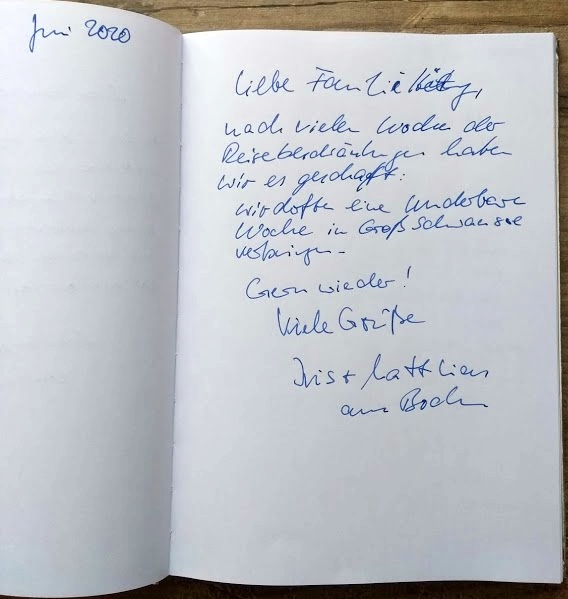 Juni 2020
Liebe Familie
nach vielen Wochen der
Reisebeschränkungen haben
wir es geschafft:
wir dürfen eine wunderbare
Woche in Groß Schwansee
verbringen.
Gern wieder!
Viele Grüße
Iris + Matthias
aus